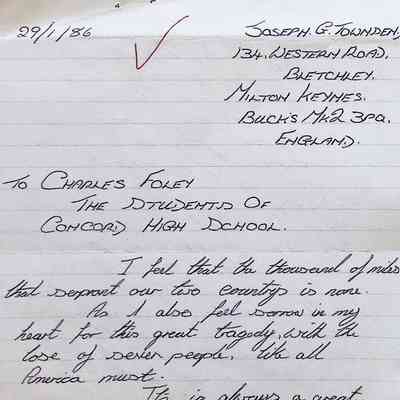 29/1/86
JOSEPH. G. TOWNDEN,
134. WESTERN ROAD.
BLETCHLEY.
MILTON KEYNES.
BUCK'S MK2 3PQ.
ENGLAND.
TO CHARLES FOLEY
THE STUDENTS OF
CONCORD HIGH SCHOOL.
I feel that the thousand of miles
that serprant our two countrys is none.
As I also feel sorrow in my
heart for this great tragedy, with the
lose of seven people, like all
America must.
It is always a great